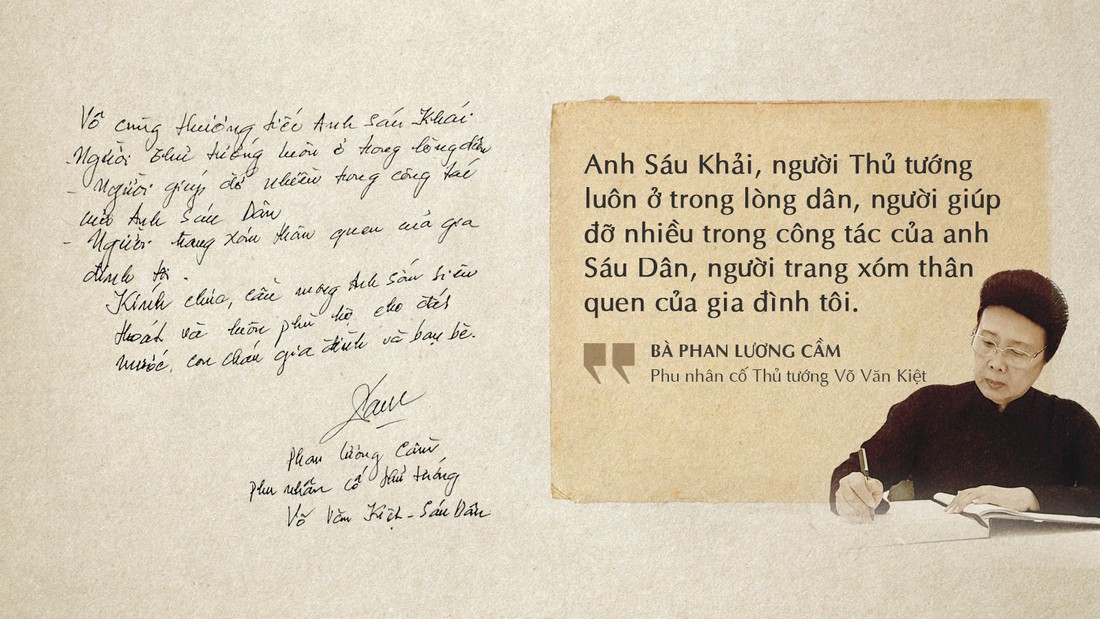 Vô cùng thương tiếc Anh Sáu Khải
- Người Thủ tướng luôn ở trong lòng dân
- Người giúp đỡ nhiều trong công tác
của Anh Sáu Dân
- Người trang xóm thân quen của gia
đình tôi.
Kính chúc, cầu mong Anh Sáu siêu
thoát và luôn phù hộ cho đất
nước, con cháu gia đình và bạn bè.
Phan Lương Cầm
Phu nhân cố Thủ tướng
Võ Văn Kiệt - Sáu Dân
Anh Sáu Khải, người Thủ tướng
luôn ở trong lòng dân, người giúp
đỡ nhiều trong công tác của anh
Sáu Dân, người trang xóm thân
quen của gia đình tôi.
BÀ PHAN LƯƠNG CẦM
Phu nhân cố Thủ tướng Võ Văn Kiệt